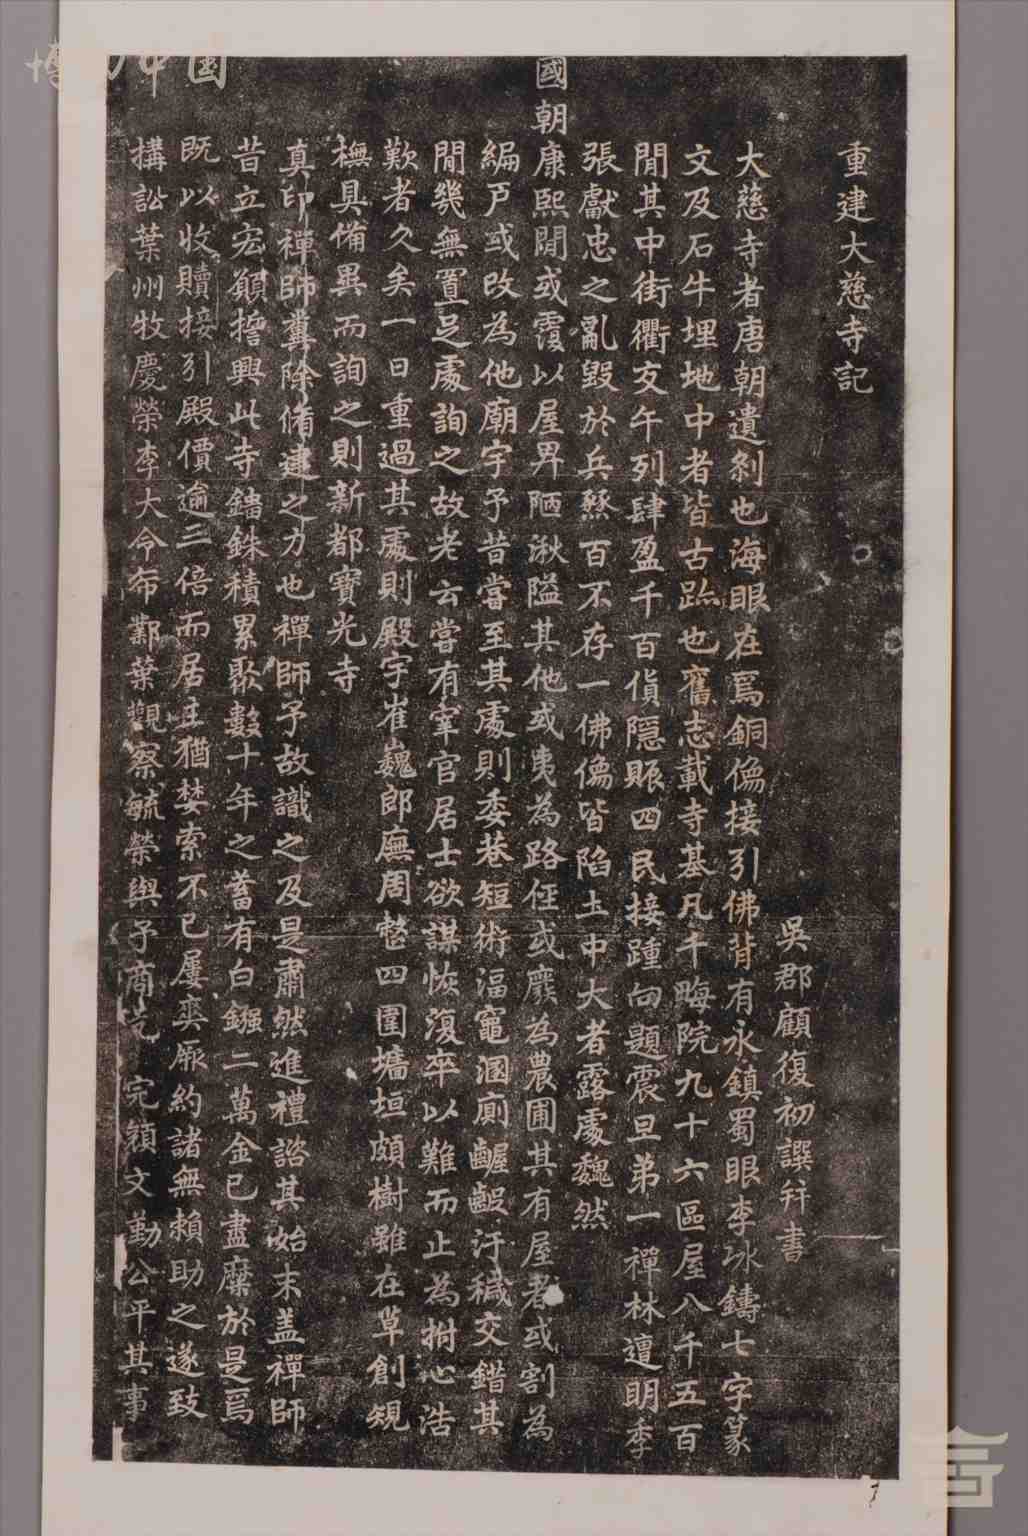 重建大慈寺記
吳郡顧復初譔并書
大慈寺者唐朝遺剎也海眼在焉銅像接引佛背有永鎮蜀眼李冰鑄七字篆
文及石牛埋地中者皆古蹟也舊志載寺基凡千畮院九十六區屋八千五百
閒其中街衢交午列肆盈千百貨隱賑四民接踵向題震旦弟一禪林遭明季
張獻忠之亂毀於兵燹百不存一佛像皆陷土中大者露處巍然
國朝康熙閒或覆以屋卑陋湫隘其他或夷為路徑或廢為農圃其有屋者或割為
編戶或改為他廟宇予昔嘗至其處則委巷短術湢竈溷廁齷齪汙穢交錯其
閒幾無置足處詢之故老云嘗有宰官居士欲謀恢復卒以難而止為拊心浩
歎者久矣一日重過其處則殿宇崔巍郎廡周整四圍墻垣頗樹雖在草創規
橅具備異而詢之則新都寶光寺
真印禪師糞除脩建之力也禪師予故識之及是肅然進禮諮其始末盖禪師
昔立宏願擔興此寺鎦銖積累聚數十年之蓄有白鏹二萬金已盡糜於是焉
既以收贖接引殿價逾三倍而居主猶婪索不已屢爽厥約諸無賴助之遂致
搆訟葉州牧慶榮李大令布鄴葉觀察毓榮與予商定完顏文勤公平其事
博 中國
言